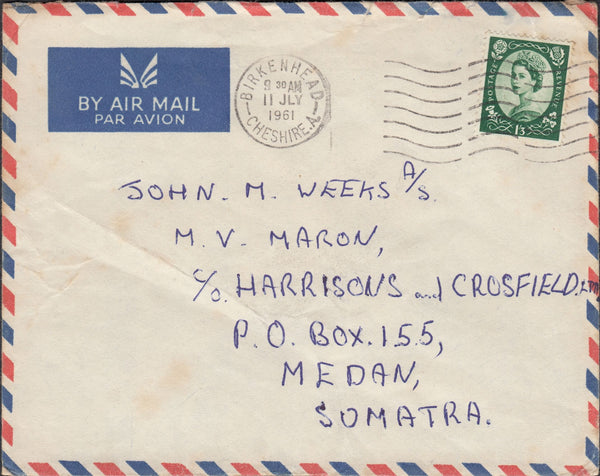 BY AIR MAIL
PAR AVION
BIRKENHEAD
9 30 AM
11 JLY
1961
CHESHIRE.A.
POSTAGE
REVENUE
1/3
JOHN. M. WEEKS A/S.
M. V. MARON,
c/o. HARRISONS and CROSFIELD. LTD
P. O. BOX. 155,
MEDAN,
SUMATRA.